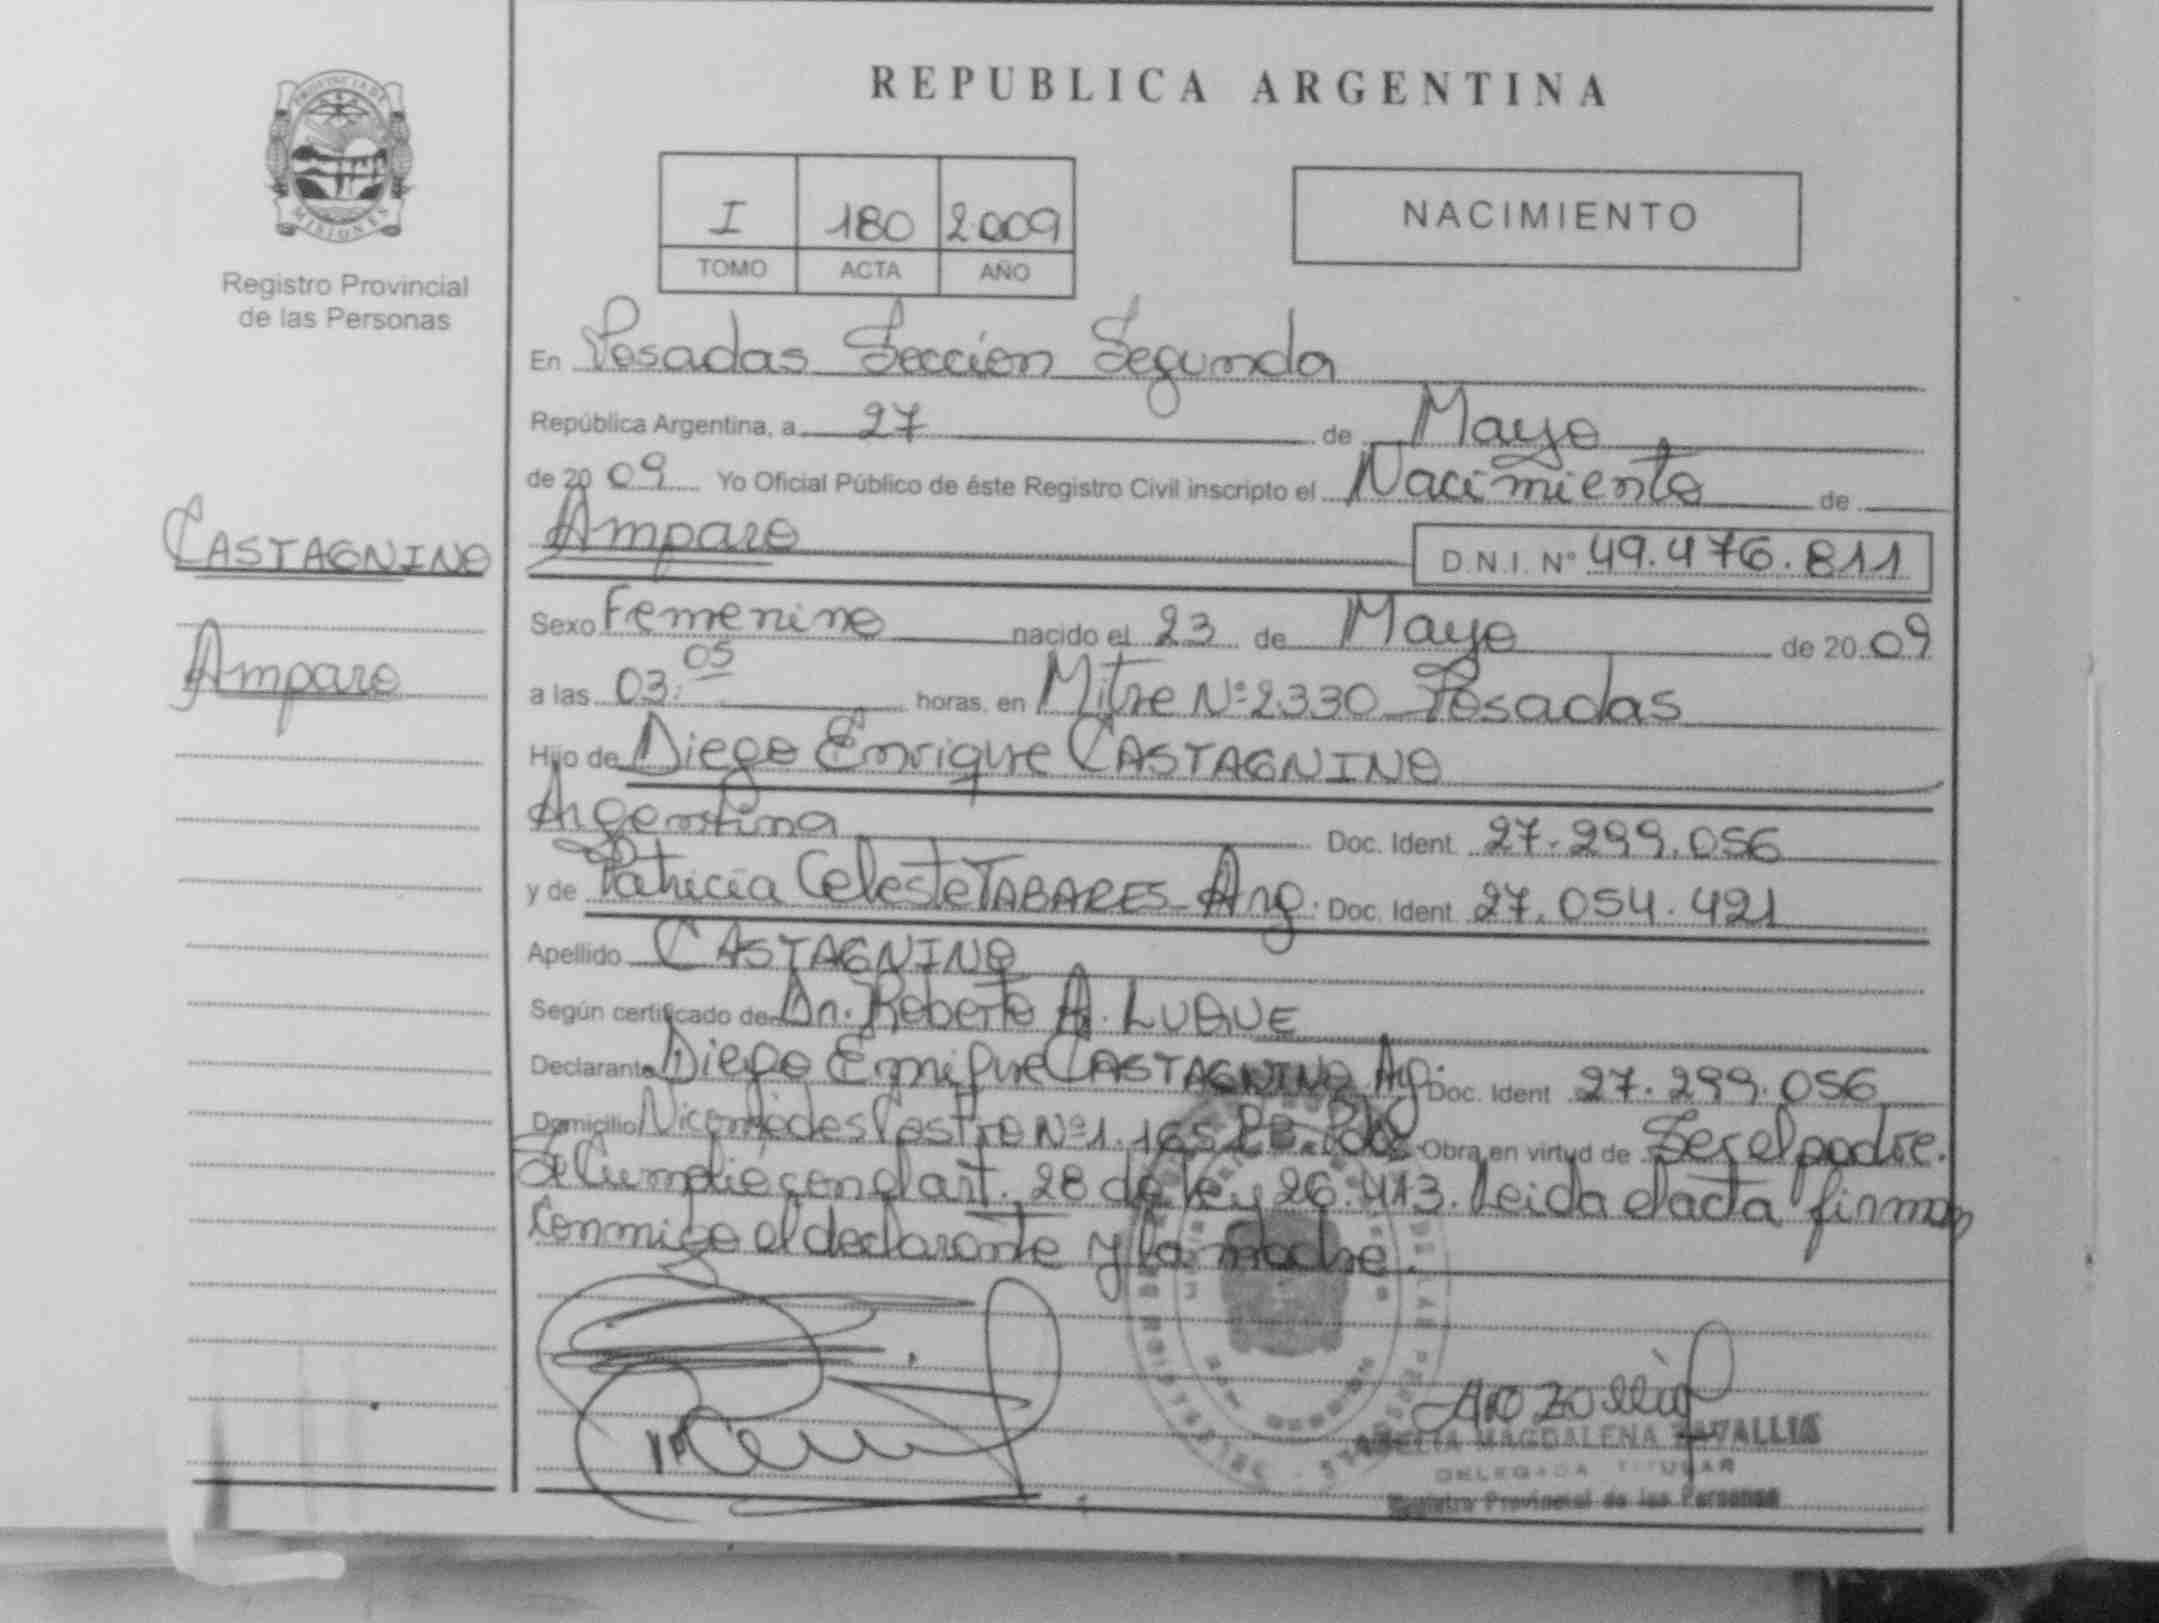 REPUBLICA ARGENTINA
PROVINCIA DE
MISIONES
Registro Provincial
de las Personas
I 180 2.009
TOMO ACTA AÑO
NACIMIENTO
En Posadas Seccion Segunda
República Argentina, a 27 de Mayo
de 2009 Yo Oficial Público de éste Registro Civil inscripto el Nacimiento de
CASTAGNINO
Amparo
Amparo D.N.I. Nº 49.476.811
Sexo Femenino nacido el 23 de Mayo de 2009
a las 03:05 horas, en Mitre Nº 2.330 Posadas
Hijo de Diego Enrique CASTAGNINO
Argentina Doc. Ident. 27.299.056
y de Patricia Celeste TABARES Arg. Doc. Ident. 27.054.421
Apellido CASTAGNINO
Según certificado de Dr. Roberto A. LUQUE
Declarante Diego Enrique CASTAGNINO Arg. Doc. Ident. 27.299.056
Domicilio Nicomedes Castro Nº 1.165 Obra en virtud de Ser el padre.
Se Cumplió con el art. 28 de ley 26.413. Leida el acta firman
conmigo el declarante y la madre.
MAGDALENA ZAVALLIS
DELEGADA TITULAR
Registro Provincial de las Personas